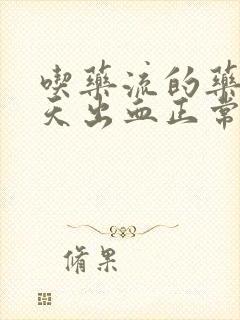 喫藥流的藥
天出血正常
脩果